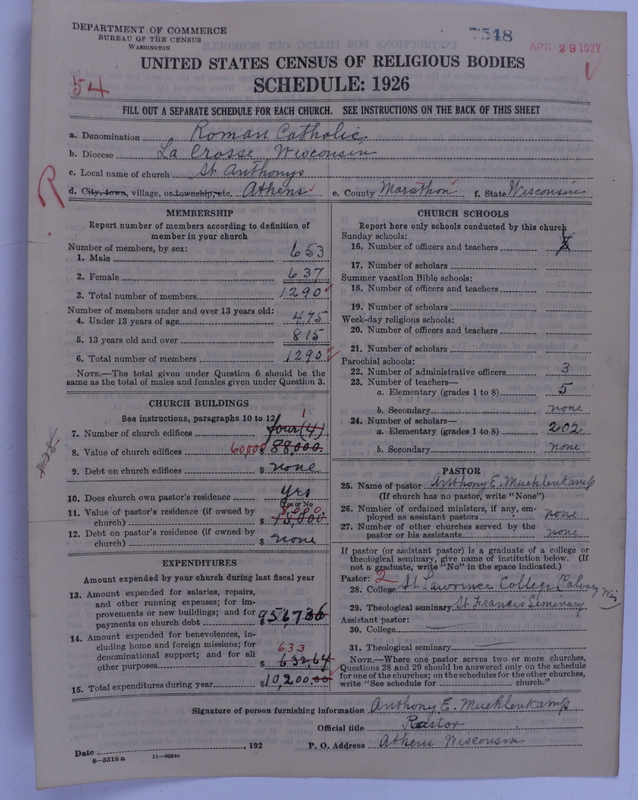 DEPARTMENT OF COMMERCE
BUREAU OF THE CENSUS
WASHINGTON
7548
APR 29 1927
UNITED STATES CENSUS OF RELIGIOUS BODIES
54
SCHEDULE: 1926
FILL OUT A SEPARATE SCHEDULE FOR EACH CHURCH. SEE INSTRUCTIONS ON THE BACK OF THIS SHEET
a. Denomination Roman Catholic
b. Diocese La Crosse, Wisconsin
c. Local name of church St Anthonys
R
d. City, town, village, or township, etc. Athens e. County Marathon f. State Wisconsin
MEMBERSHIP
Report number of members according to definition of member in your church
Number of members, by sex:
1. Male 653
2. Female 637
3. Total number of members 1290
Number of members under and over 13 years old:
4. Under 13 years of age 475
5. 13 years old and over 815
6. Total number of members 1290
NOTE.—The total given under Question 6 should be the
same as the total of males and females given under Question 3.
CHURCH BUILDINGS
See instructions, paragraphs 10 to 12
1
7. Number of church edifices four (4)
8. Value of church edifices 60,000 $ 88,000.
9. Debt on church edifices $ none
10. Does church own pastor's residence yes
Yes or No
11. Value of pastor's residence (if owned by
church) $ 15,000
12. Debt on pastor's residence (if owned by
church) $ none
EXPENDITURES
Amount expended by your church during last fiscal year
13. Amount expended for salaries, repairs,
and other running expenses; for im-
provements or new buildings; and for
payments on church debt 9567.36
14. Amount expended for benevolences, in-
cluding home and foreign missions; for
denominational support; and for all
633
other purposes $ 632.64
15. Total expenditures during year $ 10,200.00
CHURCH SCHOOLS
Report here only schools conducted by this church
Sunday schools:
16. Number of officers and teachers
17. Number of scholars
Summer vacation Bible schools:
18. Number of officers and teachers
19. Number of scholars
Week-day religious schools:
20. Number of officers and teachers
21. Number of scholars
Parochial schools:
22. Number of administrative officers 3
23. Number of teachers—
a. Elementary (grades 1 to 8) 5
b. Secondary none
24. Number of scholars—
a. Elementary (grades 1 to 8) 202
b. Secondary none
PASTOR
25. Name of pastor Anthony E. Muehlenkamp
(If church has no pastor, write "None")
26. Number of ordained ministers, if any, em-
ployed as assistant pastors none
27. Number of other churches served by the
pastor or his assistants none
If pastor (or assistant pastor) is a graduate of a college or
theological seminary, give name of institution below. (If
not a graduate, write "No" in the space indicated.)
Pastor: 2
28. College St Lawrence College Calvary Wis
29. Theological seminary St Francis Seminary
Assistant pastor:
30. College
31. Theological seminary
NOTE.—Where one pastor serves two or more churches,
Questions 28 and 29 should be answered only on the schedule
for one of the churches; on the schedules for the other churches,
write "See schedule for church."
Signature of person furnishing information Anthony E. Muehlenkamp
Official title Pastor
Date , 192 P. O. Address Athens Wisconsin
8-5518a